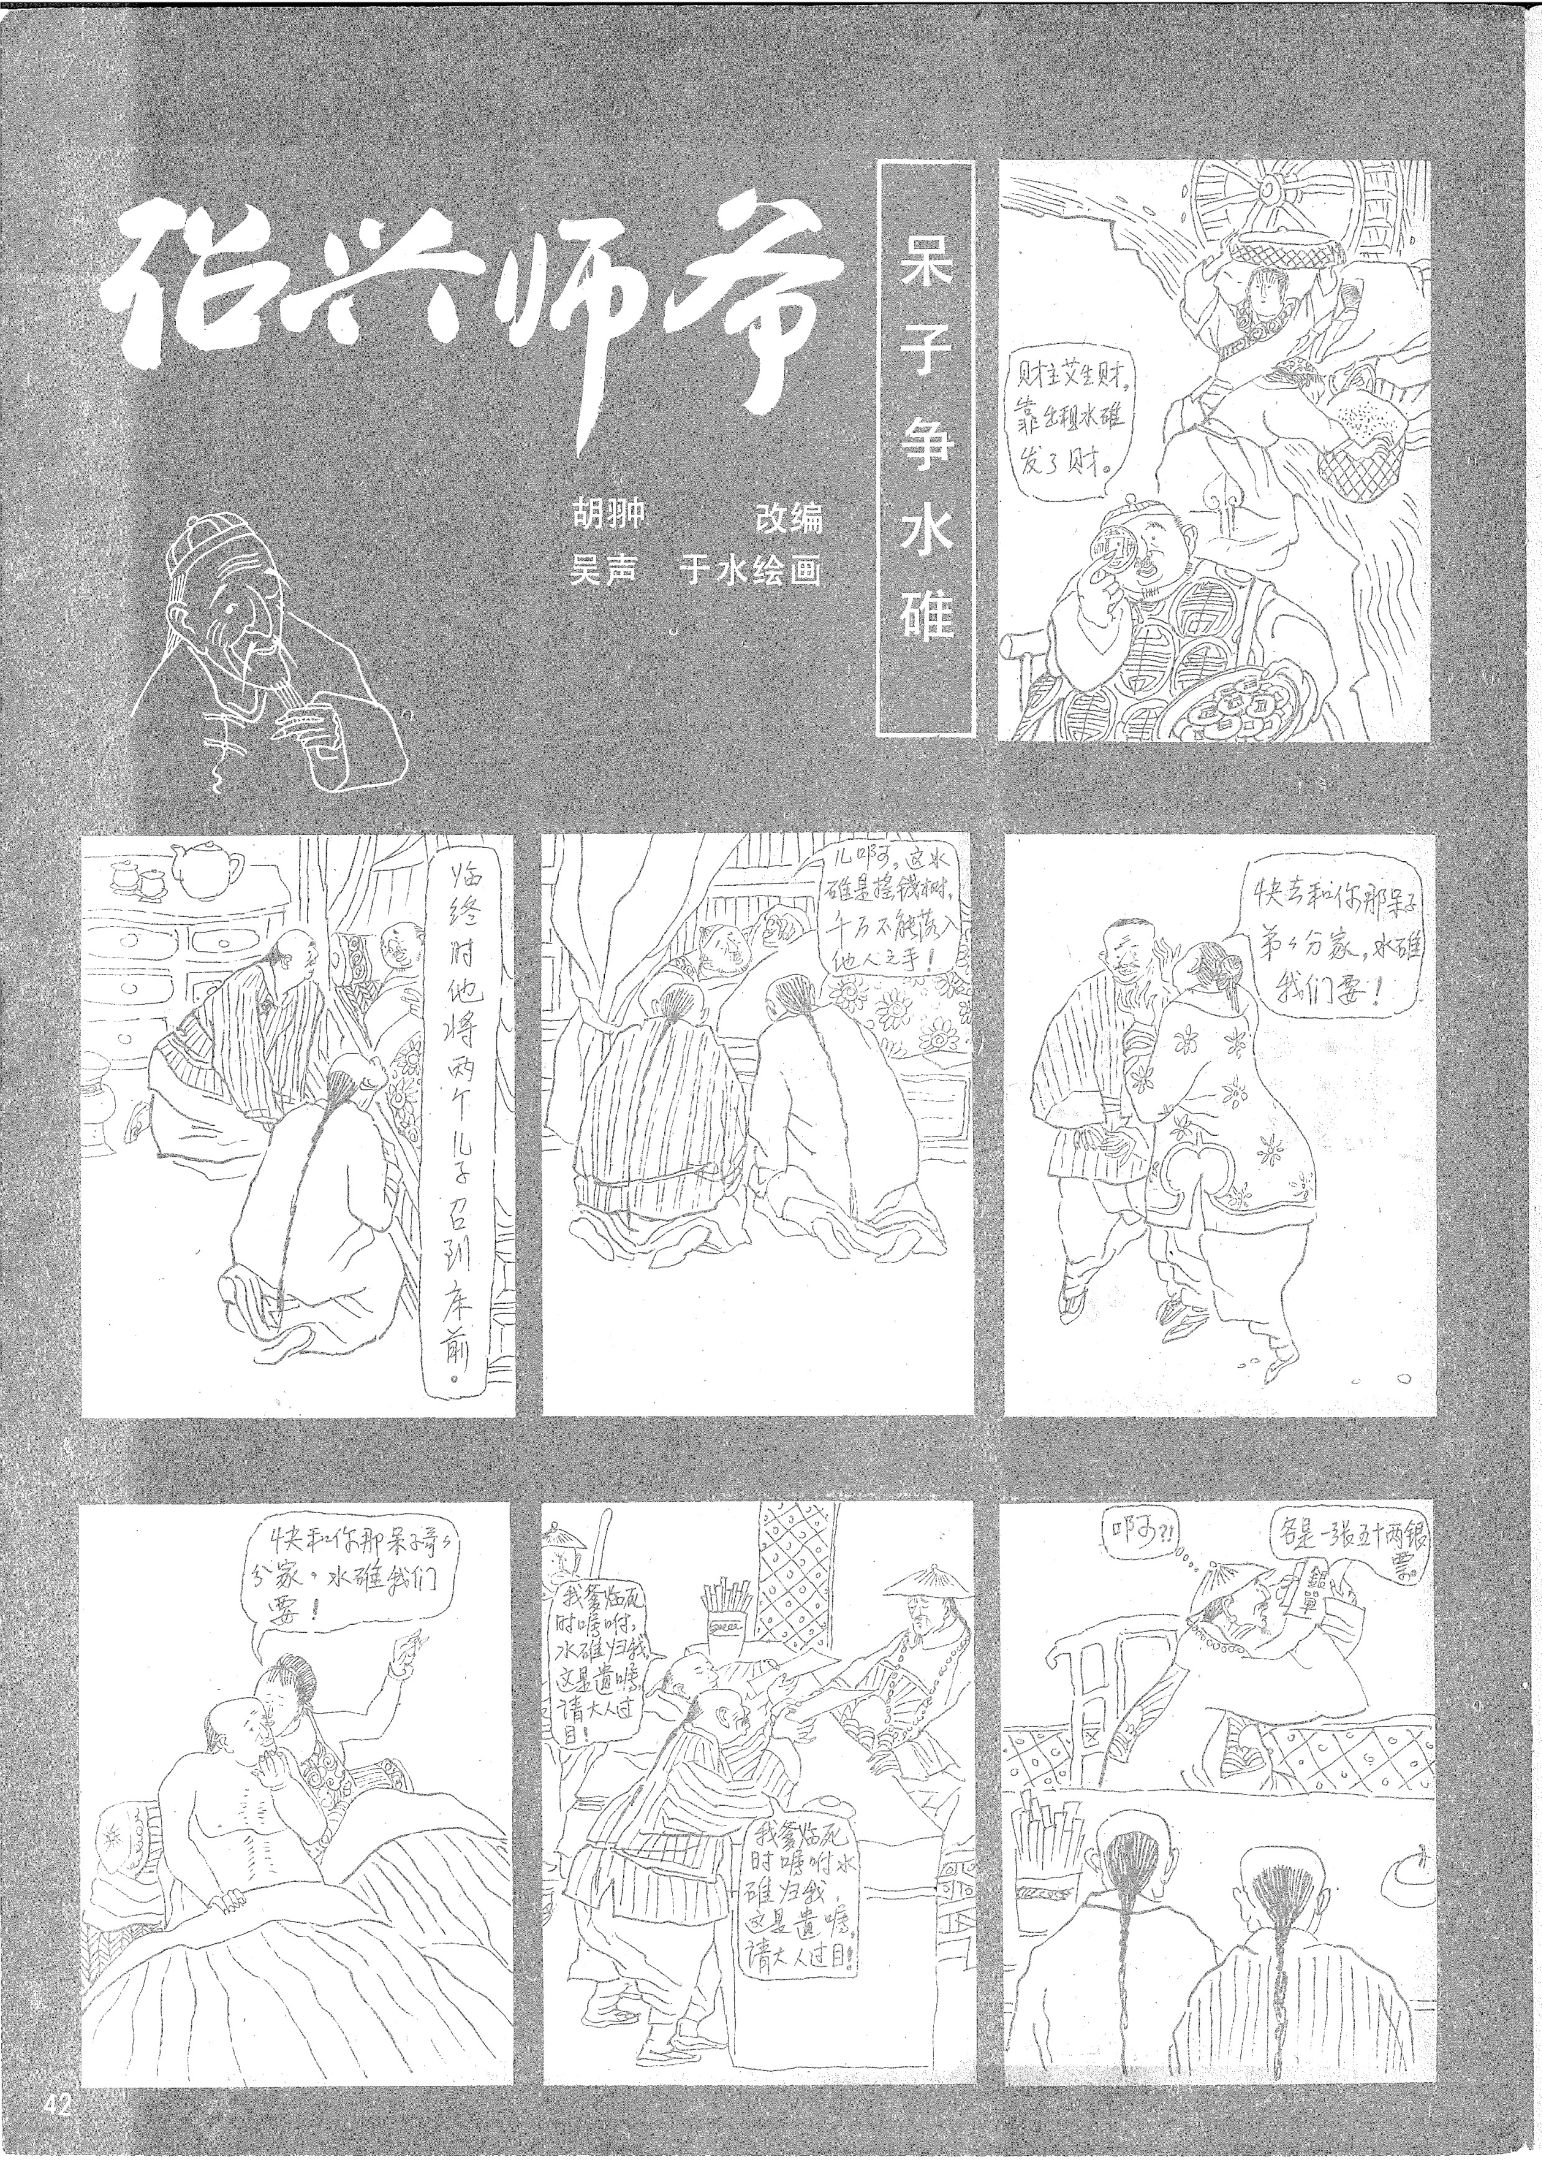 绍兴师爷
呆子争水碓
胡翀 改编
吴声 于水绘画
财主艾生财，
靠出租水碓
发了财。
临终时他将两个儿子召到床前。
儿啊，这水
碓是摇钱树，
千万不能落入
他人之手！
快去和你那呆子
弟弟分家，水碓
我们要！
快和你那呆子哥哥
分家。水碓我们
要！
我爹临死
时嘱咐，
水碓归我，
这是遗嘱，
请大人过
目！
我爹临死
时嘱咐水
碓归我，
这是遗嘱，
请大人过目！
啊？！
各是一张五十两银
票。
銀單
42